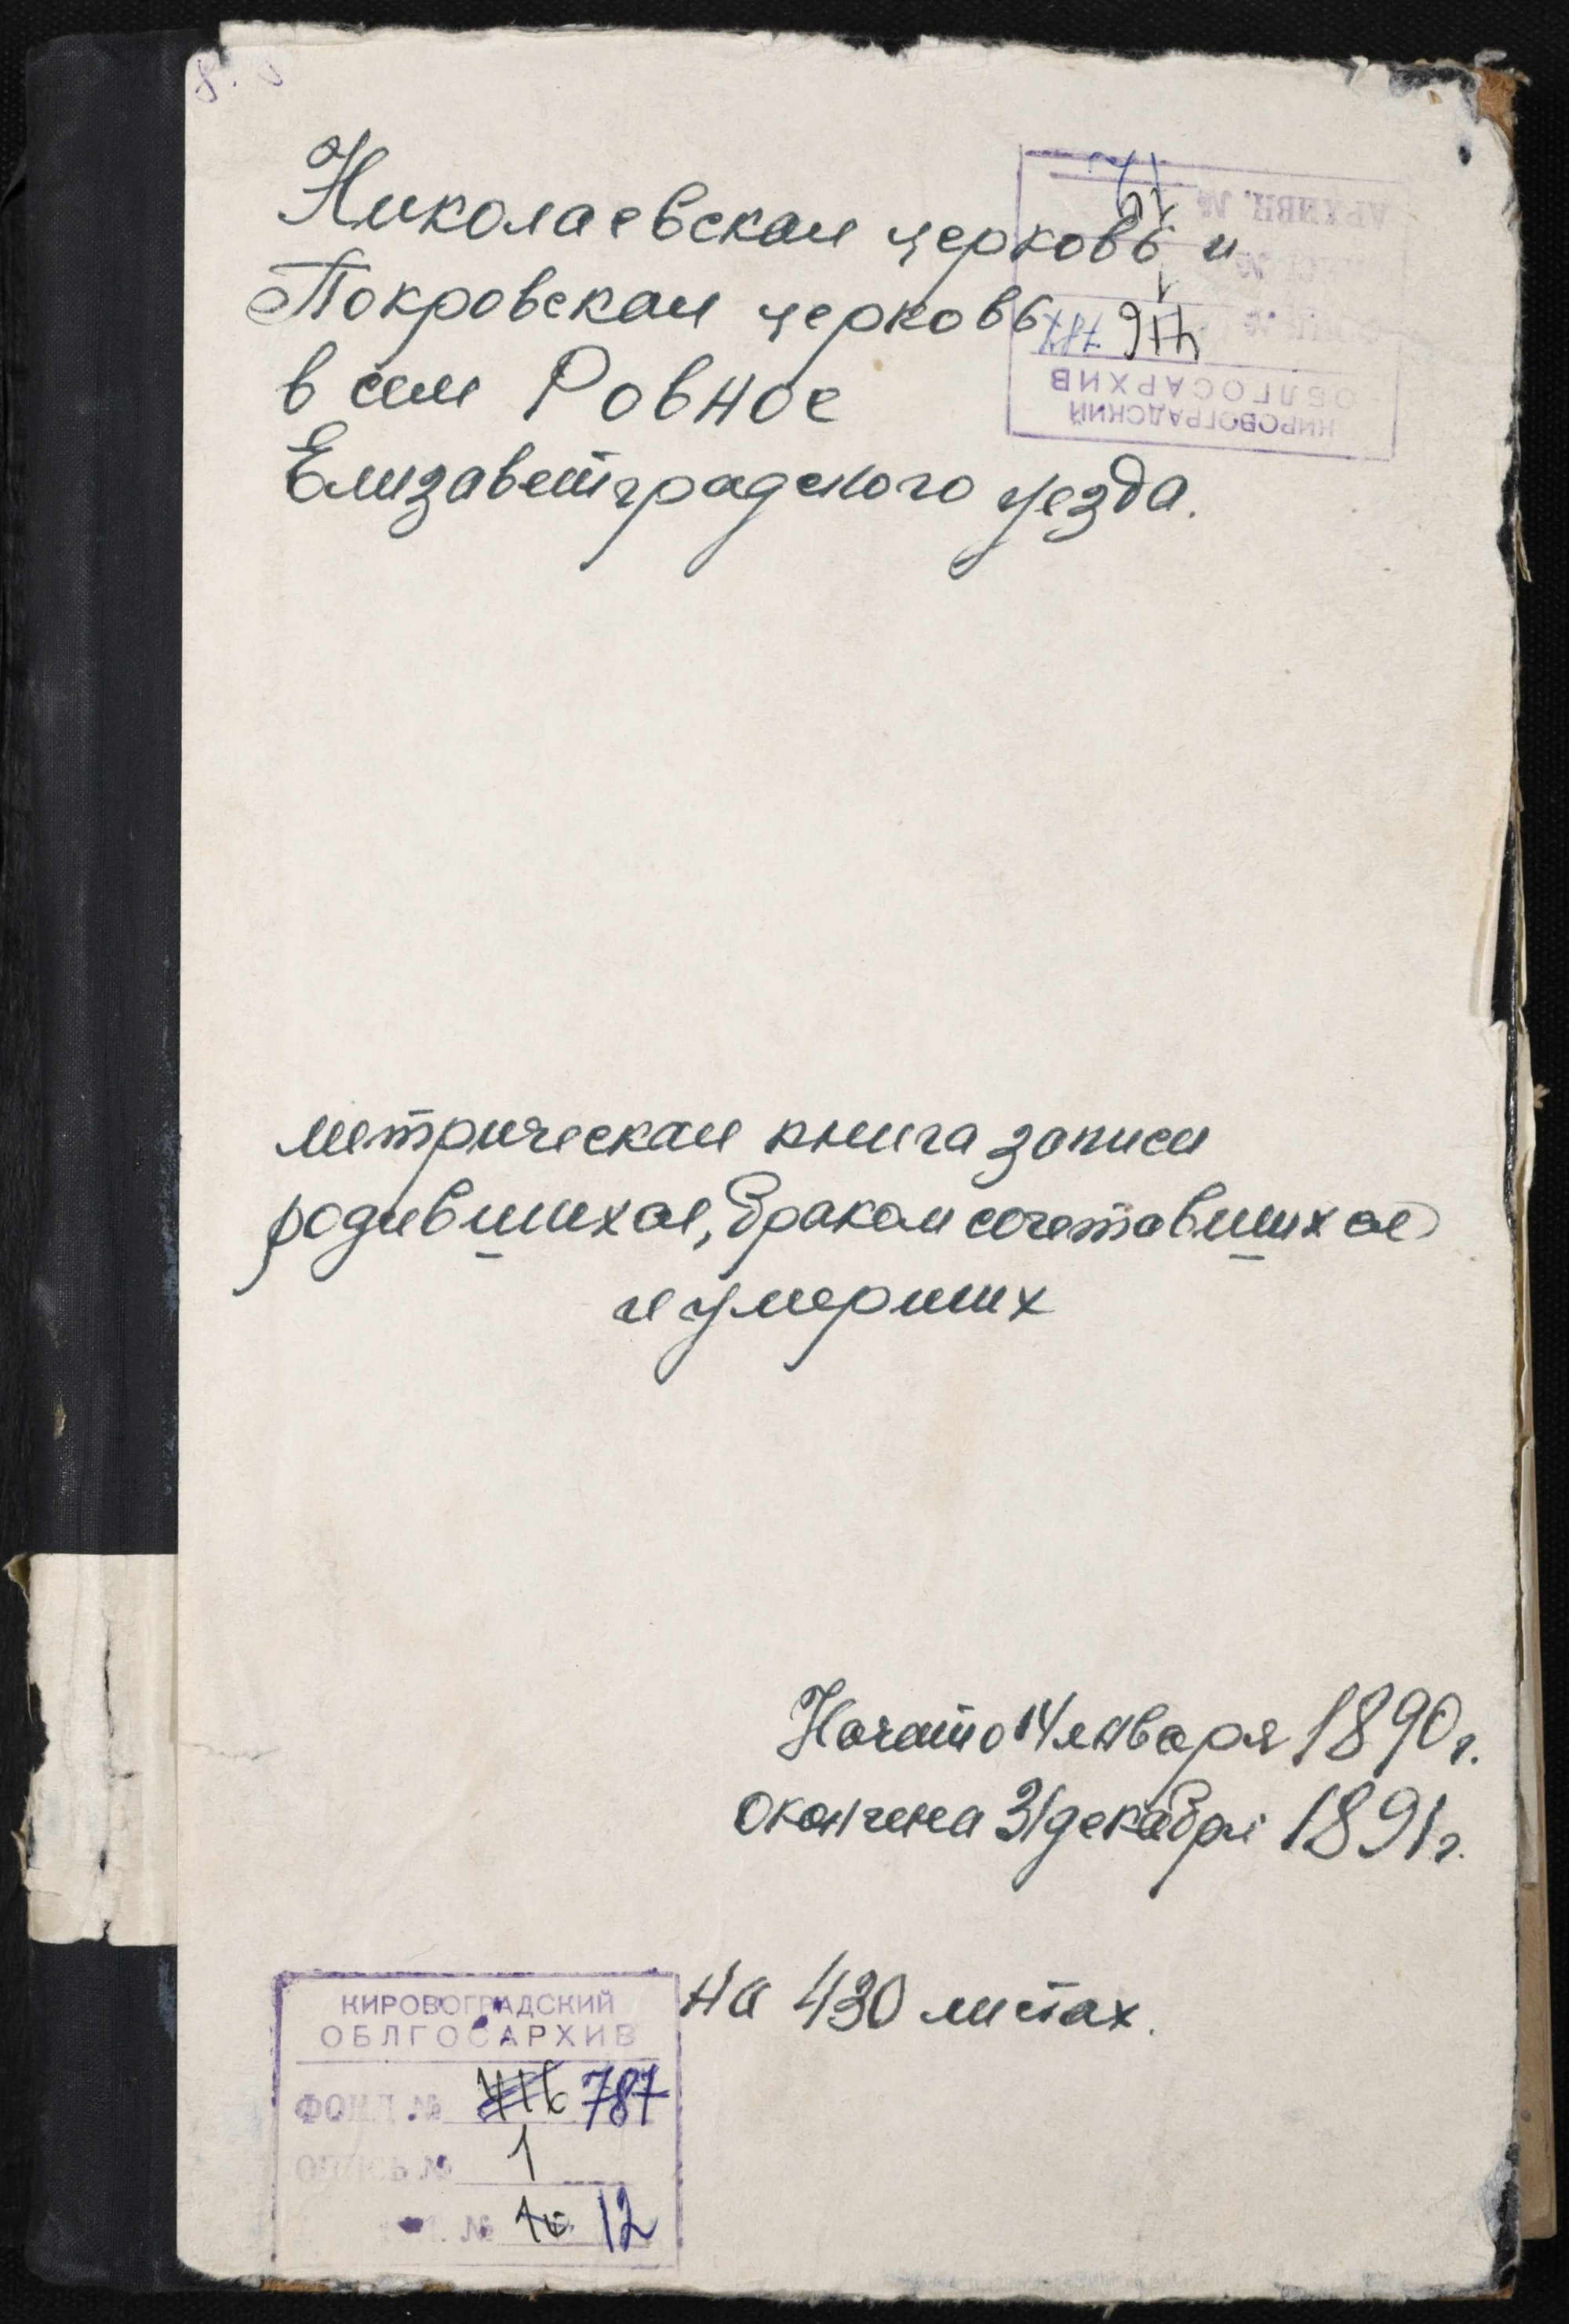 Николаевская церковь и
Покровская церковь
в селе Ровное
Елизаветградского уезда.
АРХИВН. №
416 787
ОБЛГОСАРХИВ
КИРОВОГРАДСКИЙ
метрическая книга записи
родившихся, браком сочетавшихся
и умерших
Начато 14 января 1890 г.
Окончена 31 декабря 1891 г.
на 430 листах.
КИРОВОГРАДСКИЙ
ОБЛГОСАРХИВ
ФОНД № 416 787
ОПИСЬ № 1
№ 12